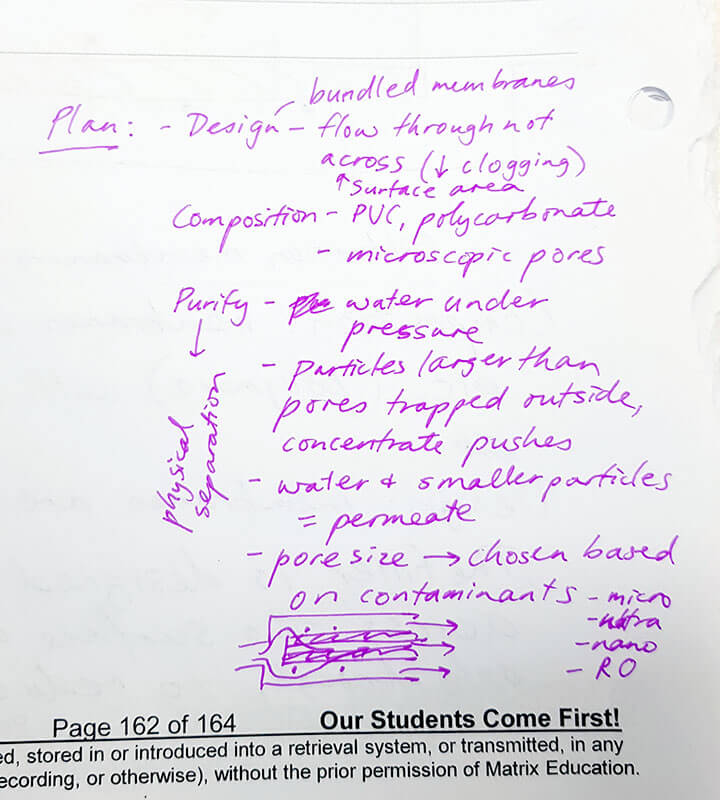 bundled membranes
Plan: - Design - flow through not
across (↓ clogging)
↑ surface area
Composition - PVC, polycarbonate
- microscopic pores
Purify - water under
pressure
- particles larger than
pores trapped outside,
concentrate pushes
physical separation
- water & smaller particles
= permeate
- pore size → chosen based
on contaminants - micro
- ultra
- nano
- RO
Page 162 of 164 Our Students Come First!
ed, stored in or introduced into a retrieval system, or transmitted, in any
ecording, or otherwise), without the prior permission of Matrix Education.